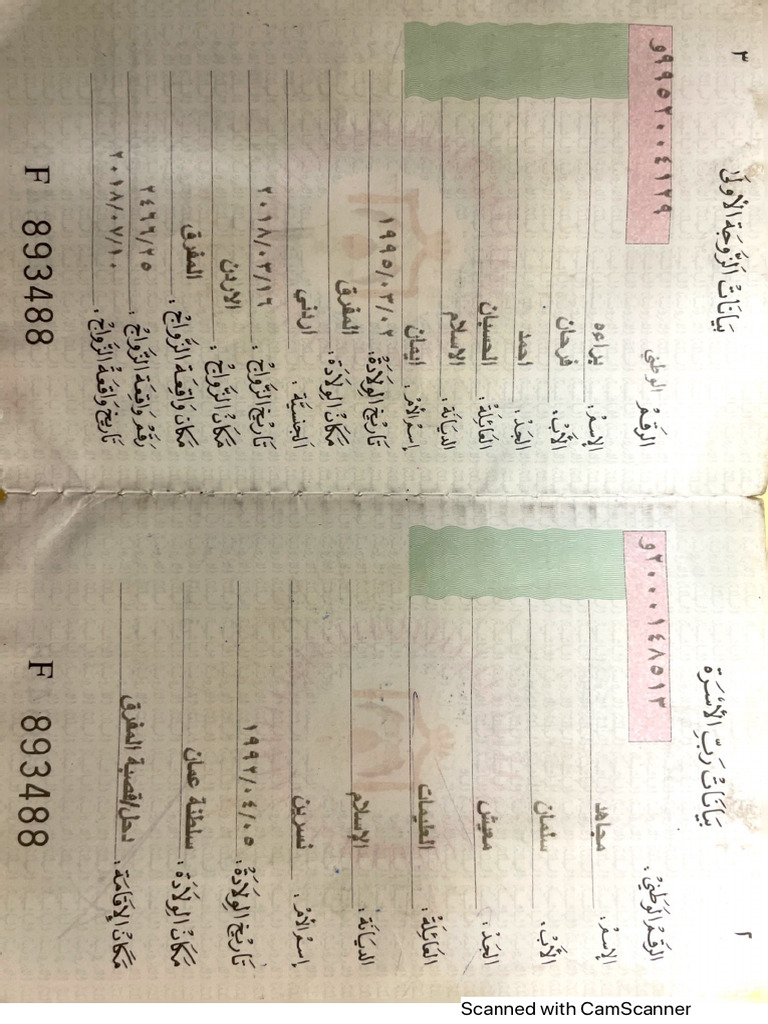 ٢
بَيَانَاتُ رَبِّ الأُسْرَة
الرقم الوطني : ٢٠٠٠١٤٨٥١٣و
الإسم : مجاهد
الأب : سلمان
الجد : معيش
العائلة : العليمات
الديانة : الإسلام
إسم الأم : نسرين
تاريخ الولادة : ١٩٩٢/٠٤/٠٥
مكان الولادة : سلطنة عمان
مكان الإقامة : دحل/قصبة المفرق
F 893488
٣
بَيَانَاتُ الزَّوجَة الأولى
الرقم الوطني ٩٩٥٢٠٠٤١٢٩و
الإسم : براءه
الأب : فرحان
الجد : احمد
العائلة : الحسبان
الديانة : الاسلام
إسم الأم : ايمان
تاريخ الولادة : ١٩٩٥/٠٣/٠٢
مكان الولادة : المفرق
الجنسية : اردني
تاريخ الزواج : ٢٠١٨/٠٣/١٦
مكان الزواج : الاردن
مكان واقعة الزواج : المفرق
رقم واقعة الزواج : ٢٤٦٦/٢٥
تاريخ واقعة الزواج : ٢٠١٨/٠٧/١٠
F 893488
Scanned with CamScanner